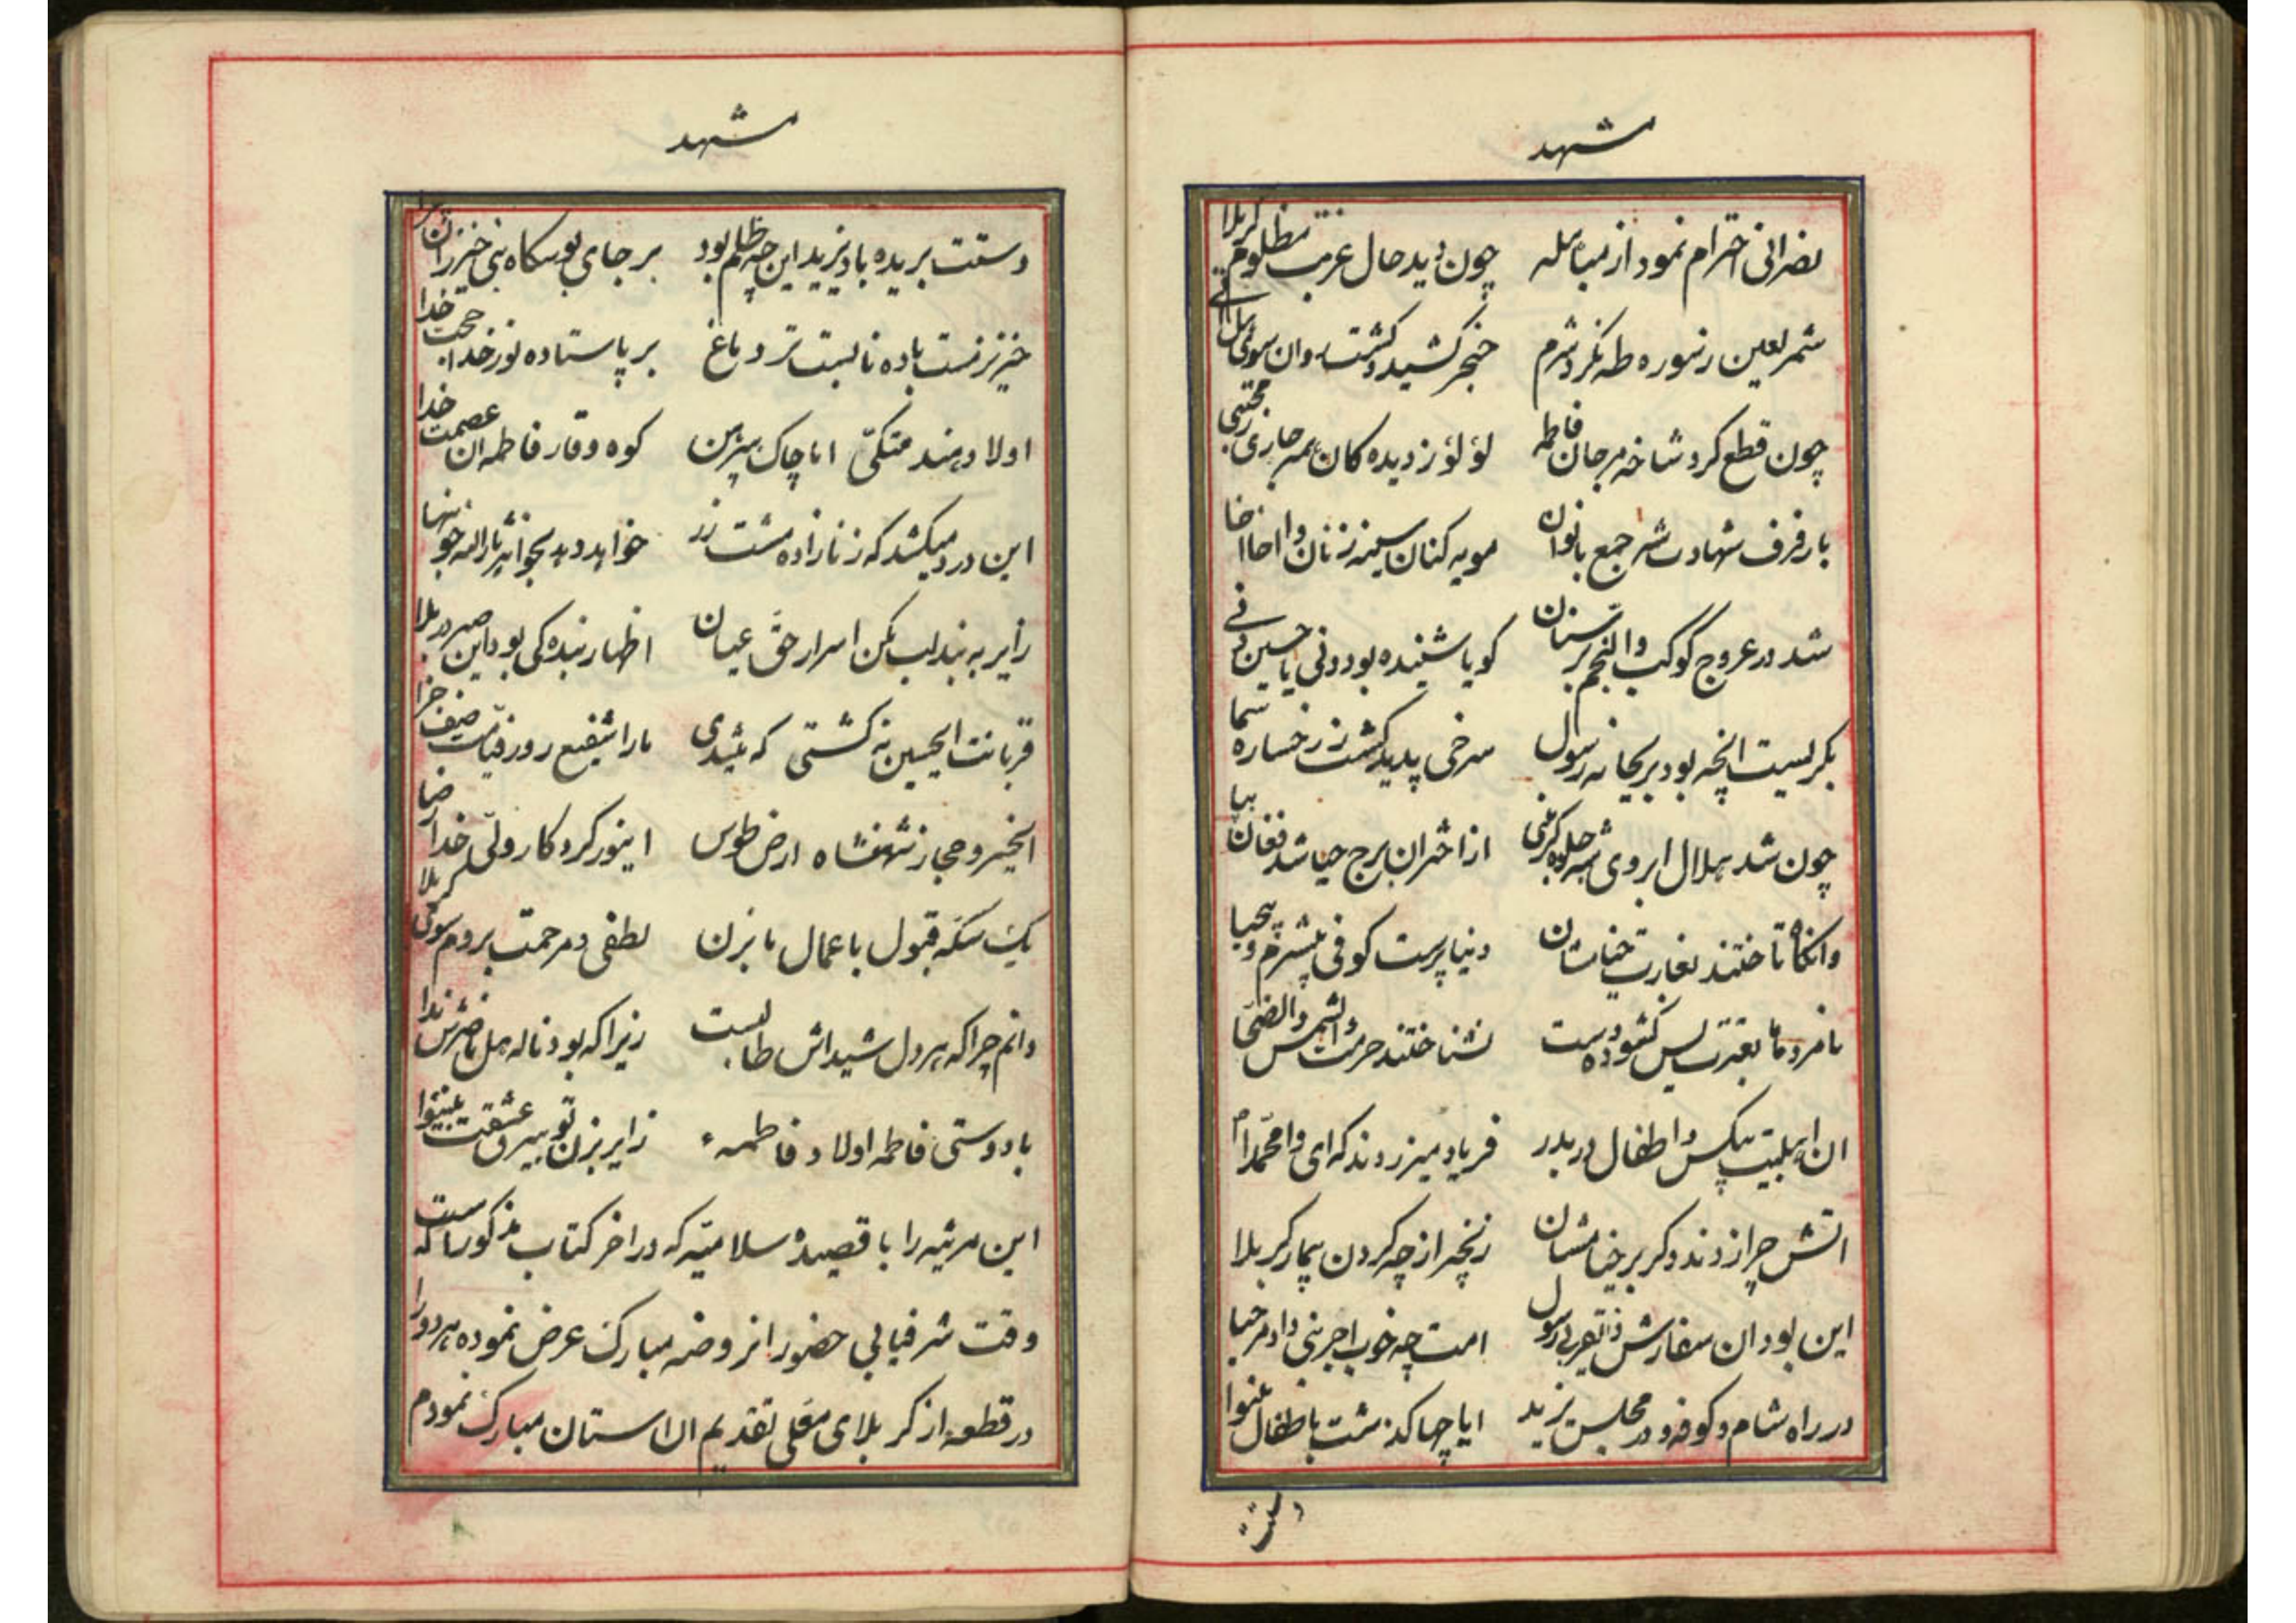 مشهد
نصرانی احترام نمود از مباهله چون دید حال غریب مظلوم کربلا
شمر لعین ز سوره طه نکرد شرم خنجر کشید و کشت
چون قطع کرد شاخه مرجان فاطمه لؤلؤ ز دیده کان
بار فرف شهادت شه جمع بانوان مویه کنان سینه زنان وا اخا اخا
شد در عروج کوکب والنجم کویا شنیده بود ونی یا حسین
بکریست انچه بود بر ریحانه رسول سرخی پدید کشت ز رخساره سما
چون شد هلال ابروی شه جلوه کر بنی از اختران برج حیا شد فغان بپا
وانکاه تاختند بغارت خیامشان دنیا پرست کوفی بیشرم و بیحیا
نامردها بغیرت بس کشوده دست نشناختند حرمت والشمس والضحی
ان اهلبیت بیکس و اطفال دربدر فریاد میزدند که ای وا محمدا
اتش چرا زدند دکر بر خیامشان زنجیر از چه کردن بیمار کربلا
این بود ان سفارش ذالقربی رسول امت چه خوب اجر نبی داد مرحبا
در راه شام و کوفه و در مجلس یزید ایا چها کذشت باطفال بینوا
دستت
مشهد
دستت بریده باد یزید این چه ظلم بود بر جای بوسکاه نبی خیزران چرا
خیز نرنست باده نابست تر دماغ بر پا ستاده نور خدا حجت خدا
اولاد هند متکی اما چاک پیرهن کوه وقار فاطمه ان عصمت خدا
این درد میکشد که زنازاده مشت زر خواهد دهد بخواهر ثارالله خونبها
زایر به بند لب مکن اسرار حق عیان اظهار بنده کی بود این صبر در بلا
قربانت ایحسین نه کشتی که شدی مارا شفیع روز قیامت صف جزا
ایخسرو حجاز شهنشاه ارض طوس اینور کردکار ولی خدا رضا
یک سکه قبول باعمال ما بزن لطفی و مرحمت بروم سوی کربلا
دانم چرا که هر دل شیداش طالبست زیرا که بود ناله هل ناصرش ندا
با دوستی فاطمه اولاد فاطمه زایر بزن تو بیرق عشقت
این مرثیه را با قصیده سلامیه که در اخر کتاب مذکور است که
وقت شرفیابی حضور انروضه مبارک عرض نموده هر دو را
در قطعه از کربلای معلی تقدیم ان استان مبارک نمودم